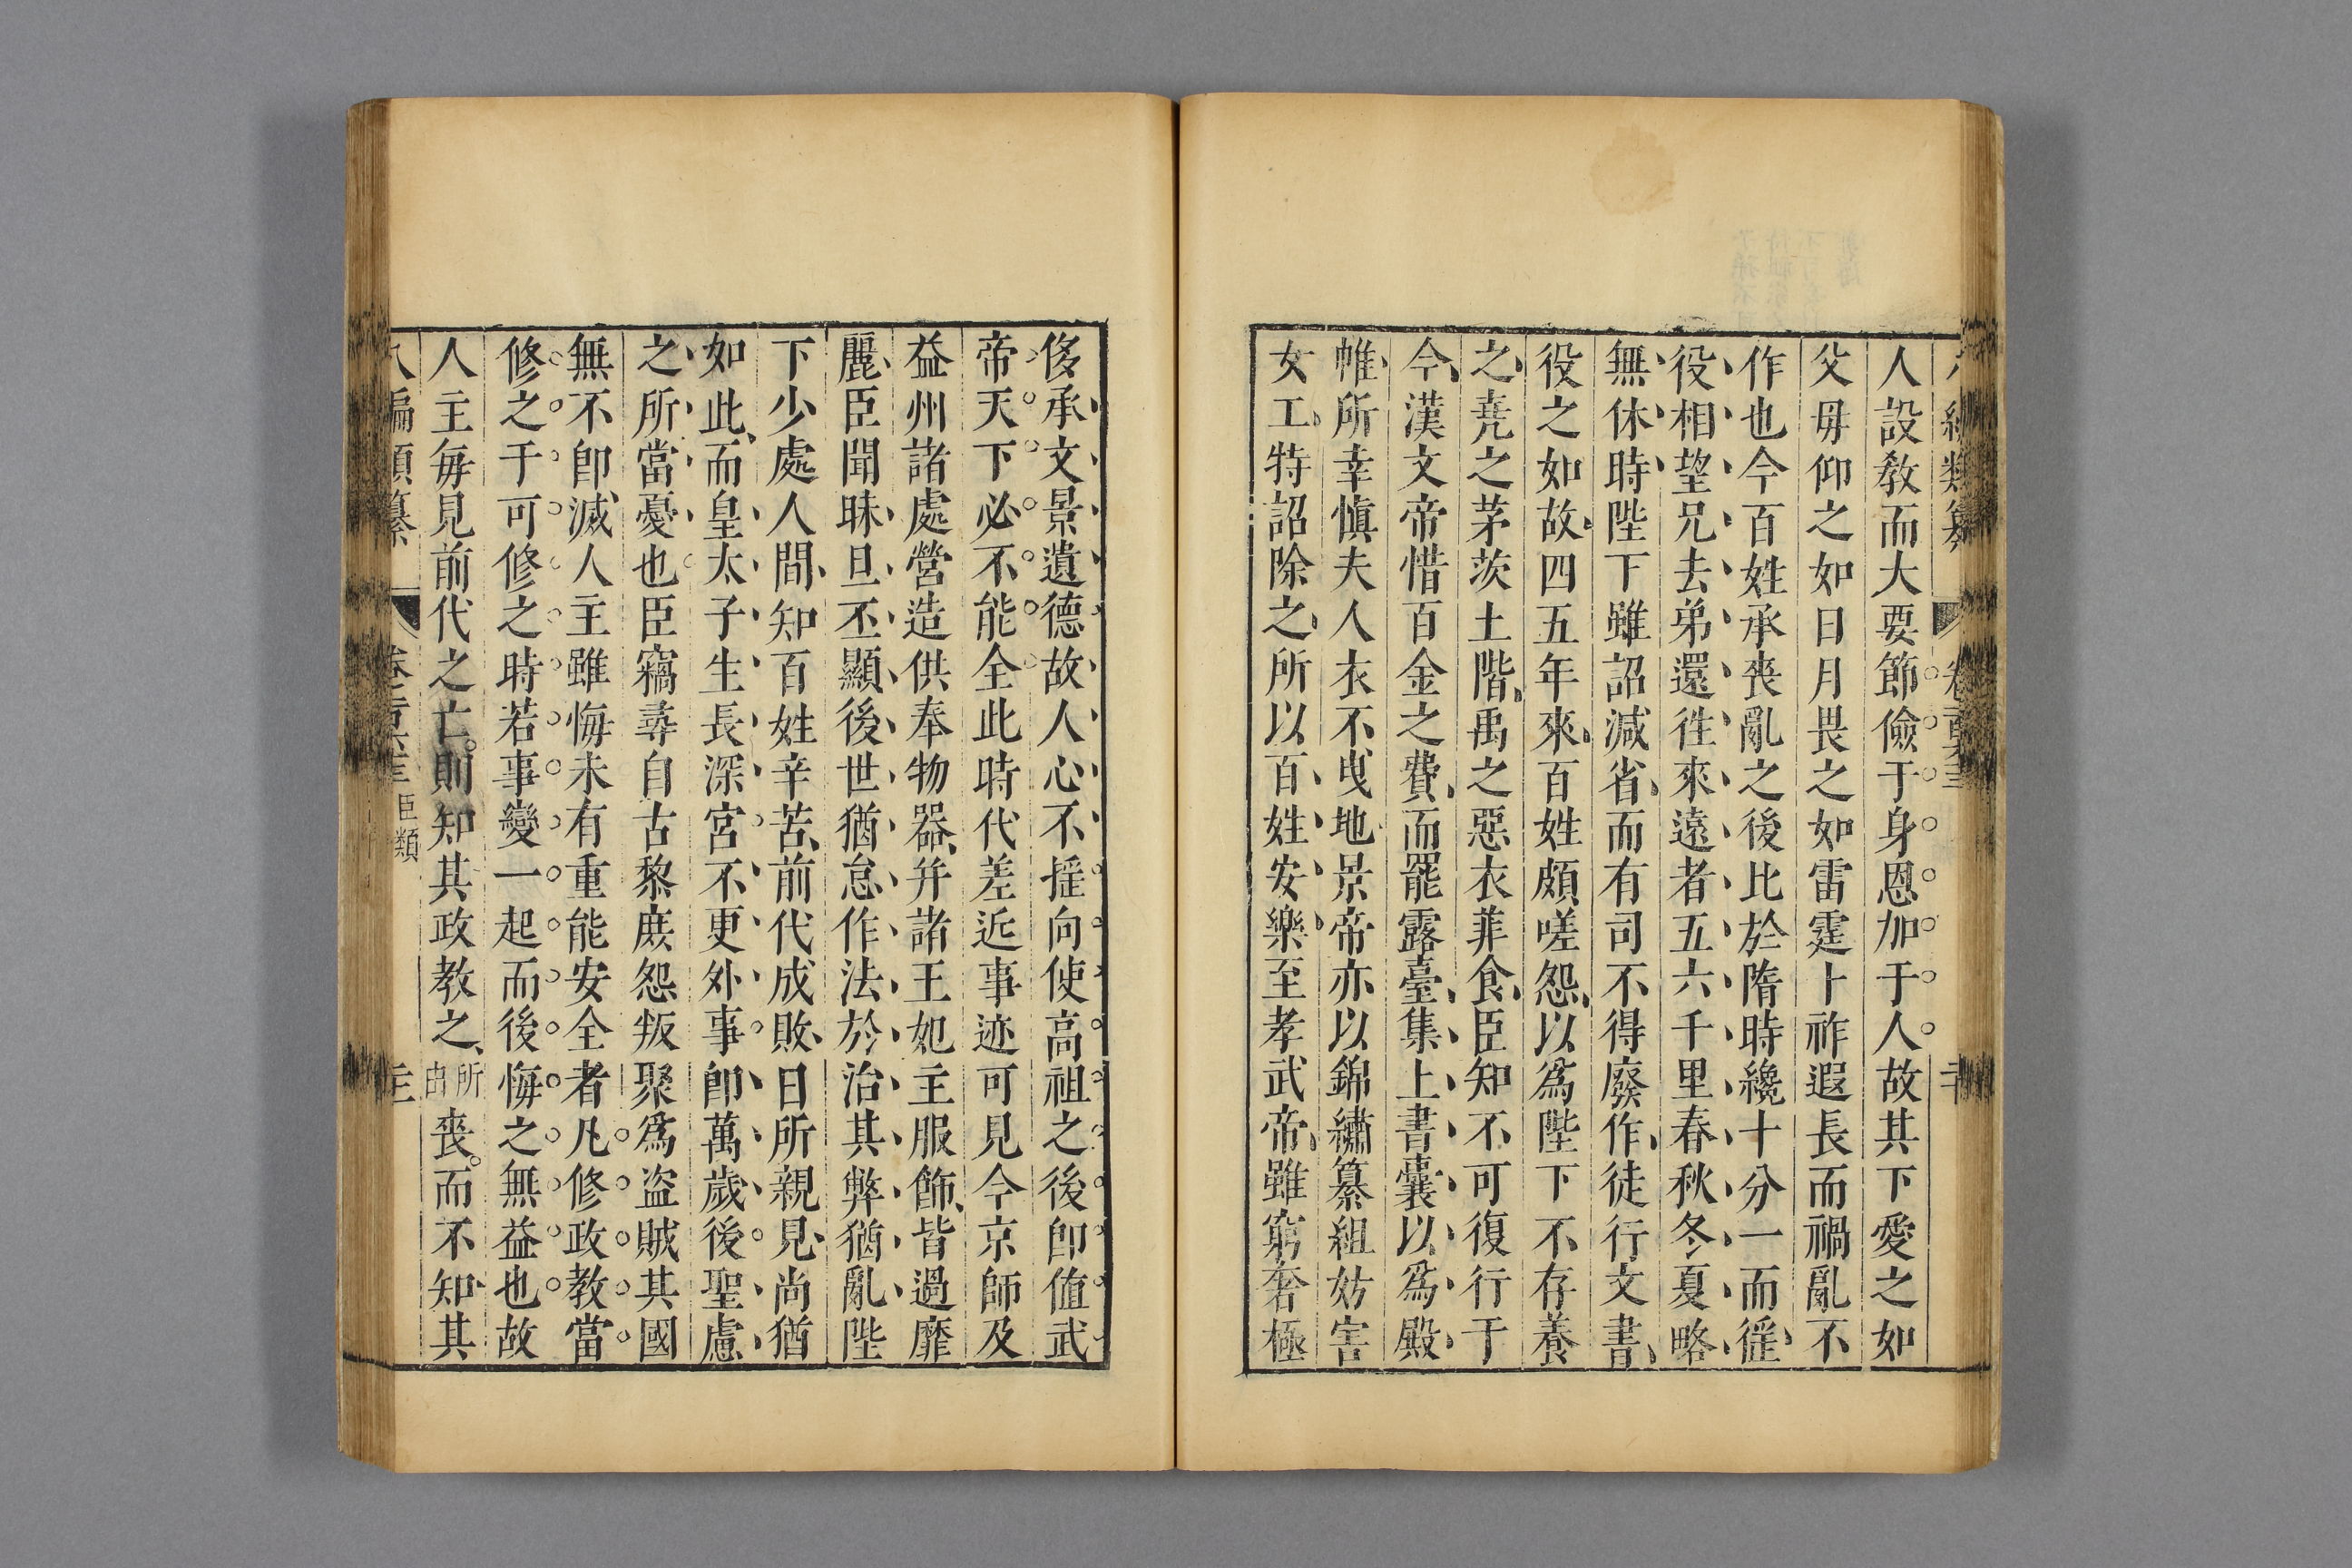 人設教而大要節儉于身恩加于人故其下愛之如
父毋仰之如日月畏之如雷霆卜祚遐長而禍亂不
作也今百姓承喪亂之後比於隋時纔十分一而徭
役相望兄去弟還徃來遠者五六千里春秋冬夏略
無休時陛下雖詔減省而有司不得廢作徒行文書
役之如故四五年來百姓頗嗟怨以爲陛下不存養
之堯之茅茨土階禹之惡衣菲食臣知不可復行于
今漢文帝惜百金之費而罷露臺集上書囊以爲殿
帷所幸愼夫人衣不曵地景帝亦以錦繡纂組妨害
女工特詔除之所以百姓安樂至孝武帝雖窮奢極
侈承文景遺德故人心不揺向使高祖之後卽值武
帝天下必不能全此時代差近事迹可見今京師及
益州諸處營造供奉物器并諸王妃主服飾皆過靡
麗臣聞昧旦丕顯後世猶怠作法於治其弊猶亂陛
下少處人間知百姓辛苦前代成敗日所親見尚猶
如此而皇太子生長深宮不更外事卽萬歲後聖慮
之所當憂也臣竊尋自古黎庶怨叛聚爲盗賊其國
無不卽滅人主雖悔未有重能安全者凡修政教當
修之于可修之時若事變一起而後悔之無益也故
人主每見前代之亡則知其政教之所由喪而不知其
八編類纂